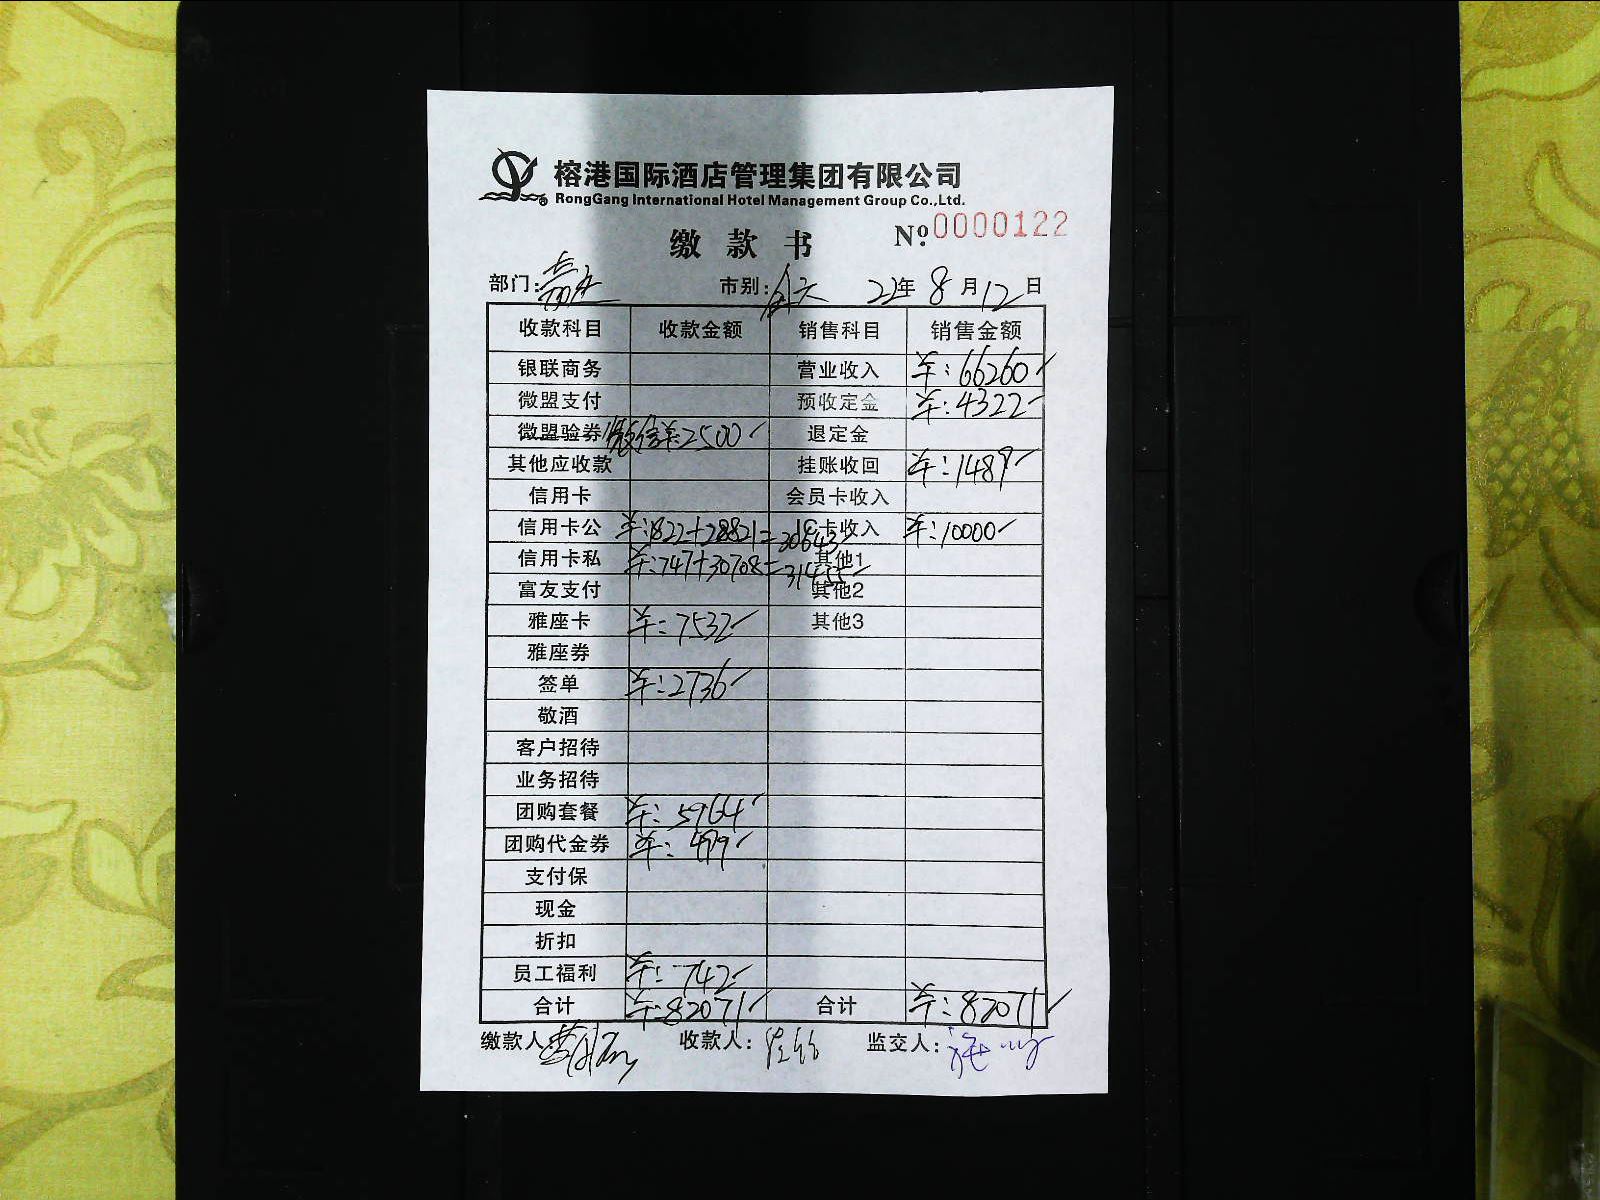 榕港国际酒店管理集团有限公司
RongGang International Hotel Management Group Co.,Ltd.
缴款书 Nº:0000122
部门: 市别:全天 22年8月12日
收款科目 收款金额 销售科目 销售金额
银联商务 营业收入 ¥:66260
微盟支付 预收定金 ¥:4322
微盟验券 微信¥:2500 退定金
其他应收款 挂账收回 ¥:1489
信用卡 会员卡收入
信用卡公 ¥:1822+28821=30643 IC卡收入 ¥:10000
信用卡私 ¥:747+30708=31455 其他1
富友支付 其他2
雅座卡 ¥:7532 其他3
雅座券
签单 ¥:2736
敬酒
客户招待
业务招待
团购套餐 ¥:5964
团购代金券 ¥:499
支付保
现金
折扣
员工福利 ¥:742
合计 ¥:82071 合计 ¥:82071
缴款人: 收款人: 监交人: